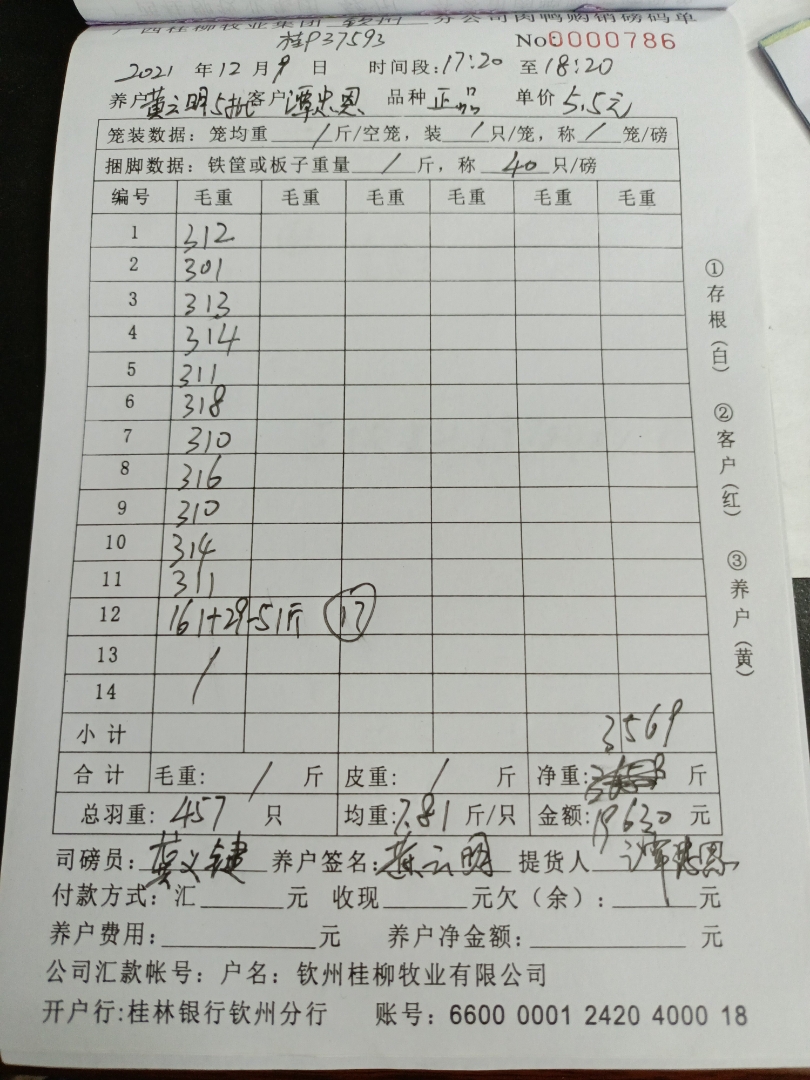 广西桂柳牧业集团 钦州 分公司肉鸭购销磅码单
桂P37593 No:0000786
2021 年 12 月 9 日 时间段:17:20 至 18:20
养户 黄云明5批 客户 潭忠恩 品种 正品 单价 5.5元
笼装数据：笼均重 / 斤/空笼，装 / 只/笼，称 / 笼/磅
捆脚数据：铁筐或板子重量 / 斤，称 40 只/磅
编号 毛重 毛重 毛重 毛重 毛重 毛重
1 312
2 301
3 313
4 314
5 311
6 318
7 310
8 316
9 310
10 314
11 311
12 161+29-51斤 17
13 /
14
小计 3569
合计 毛重: / 斤 皮重: / 斤 净重: 斤
总羽重: 457 只 均重: 7.81 斤/只 金额: 19630 元
司磅员: 黄义键 养户签名: 黄云明 提货人 潭忠恩
付款方式: 汇 元 收现 元欠（余）: 元
养户费用: 元 养户净金额: 元
公司汇款帐号：户名：钦州桂柳牧业有限公司
开户行:桂林银行钦州分行 账号：6600 0001 2420 4000 18
①存根（白） ②客户（红） ③养户（黄）